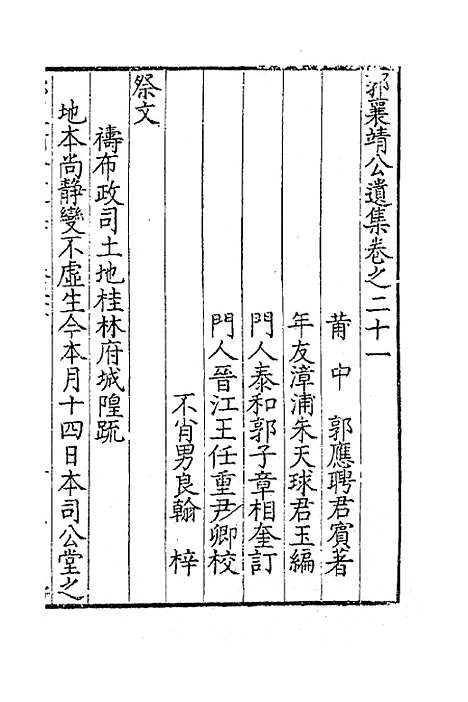 郭襄靖公遺集卷之二十一
莆中 郭應聘君賓著
年友漳浦朱天球君玉編
門人泰和郭子章相奎訂
門人晉江王任重尹卿校
不肖男良翰 梓
祭文
禱布政司土地桂林府城隍疏
地本尚靜變不虛生今本月十四日本司公堂之